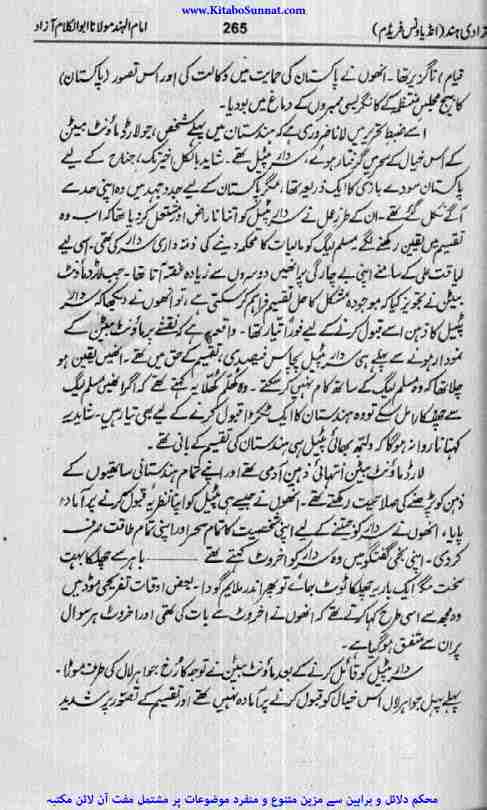 www.KitaboSunnat.com
زادی ہند (انڈیا ونس فریڈم)
265
امام الہند مولانا ابوالکلام آزاد
قیام ناگزیر تھا۔ انھوں نے پاکستان کی حمایت میں وکالت کی اور اس تصور (پاکستان)
کا بیج مجلس منتظمہ کے کانگریسی ممبروں کے دماغ میں بو دیا۔
اسے ضبط تحریر میں لانا ضروری ہے کہ ہندستان میں پہلے شخص، جو لارڈ ماؤنٹ بیٹن
کے اس خیال کے گرفتار ہوئے، سردار پٹیل تھے۔ شاید بالکل اخیر تک، جناح کے لیے
پاکستان سودے بازی کا ایک ذریعہ تھا، مگر پاکستان کے لیے جدوجہد میں وہ اپنی حد سے
آگے نکل گئے تھے۔ ان کے طرز عمل نے سردار پٹیل کو اتنا ناراض اور مشتعل کر دیا تھا کہ اب وہ
تقسیم میں یقین رکھنے لگے۔ مسلم لیگ کو مالیات کا محکمہ دینے کی ذمہ داری سردار کی تھی۔ اسی لیے
لیاقت علی کے سامنے اپنی بے چارگی پر انھیں دوسروں سے زیادہ غصہ آتا تھا۔ جب لارڈ ماؤنٹ
بیٹن نے تجویز کیا کہ موجودہ مشکل کا حل تقسیم فراہم کر سکتی ہے، تو انھوں نے دیکھا کہ سردار
پٹیل کا ذہن اسے قبول کرنے کے لیے فوراً تیار تھا۔ واقعہ یہ ہے کہ نقشے پر ماؤنٹ بیٹن کے
نمودار ہونے سے پہلے ہی سردار پٹیل پچاس فیصدی، تقسیم کے حق میں تھے۔ انھیں یقین ہو
چلا تھا کہ وہ مسلم لیگ کے ساتھ کام نہیں کر سکتے۔ وہ کھلم کھلا یہ کہتے تھے کہ اگر انھیں مسلم لیگ
سے چھٹکارا مل سکے تو وہ ہندستان کا ایک ٹکڑا قبول کرنے کے لیے بھی تیار ہیں۔ شاید یہ
کہنا ناروا نہ ہوگا کہ ولبھ بھائی پٹیل ہی ہندستان کی تقسیم کے بانی تھے۔
لارڈ ماؤنٹ بیٹن انتہائی ذہین آدمی تھے اور اپنے تمام ہندستانی ساتھیوں کے
ذہن کو پڑھنے کی صلاحیت رکھتے تھے۔ انھوں نے جیسے ہی پٹیل کو اپنا نظریہ قبول کرنے پر آمادہ
پایا، انھوں نے سردار کو جیتنے کے لیے اپنی شخصیت کا تمام سحر اور اپنی تمام طاقت صرف
کر دی۔ اپنی نجی گفتگو میں وہ سردار کو اخروٹ کہتے تھے ــــــ باہر سے چھلکا بہت
سخت مگر ایک بار یہ چھلکا ٹوٹ جائے تو پھر اندر ملائم گودا۔ بعض اوقات تفریحی موڈ میں
وہ مجھ سے اسی طرح کہا کرتے تھے کہ انھوں نے اخروٹ سے بات کی تھی اور اخروٹ ہر سوال
پر ان سے متفق ہو گیا ہے۔
سردار پٹیل کو قائل کرنے کے بعد ماؤنٹ بیٹن نے توجہ کا رخ جواہر لال کی طرف موڑا۔
پہلے پہل جواہر لال اس خیال کو قبول کرنے پر آمادہ نہیں تھے اور تقسیم کے تصور پر شدید
محکم دلائل و براہین سے مزین متنوع و منفرد موضوعات پر مشتمل مفت آن لائن مکتبہ